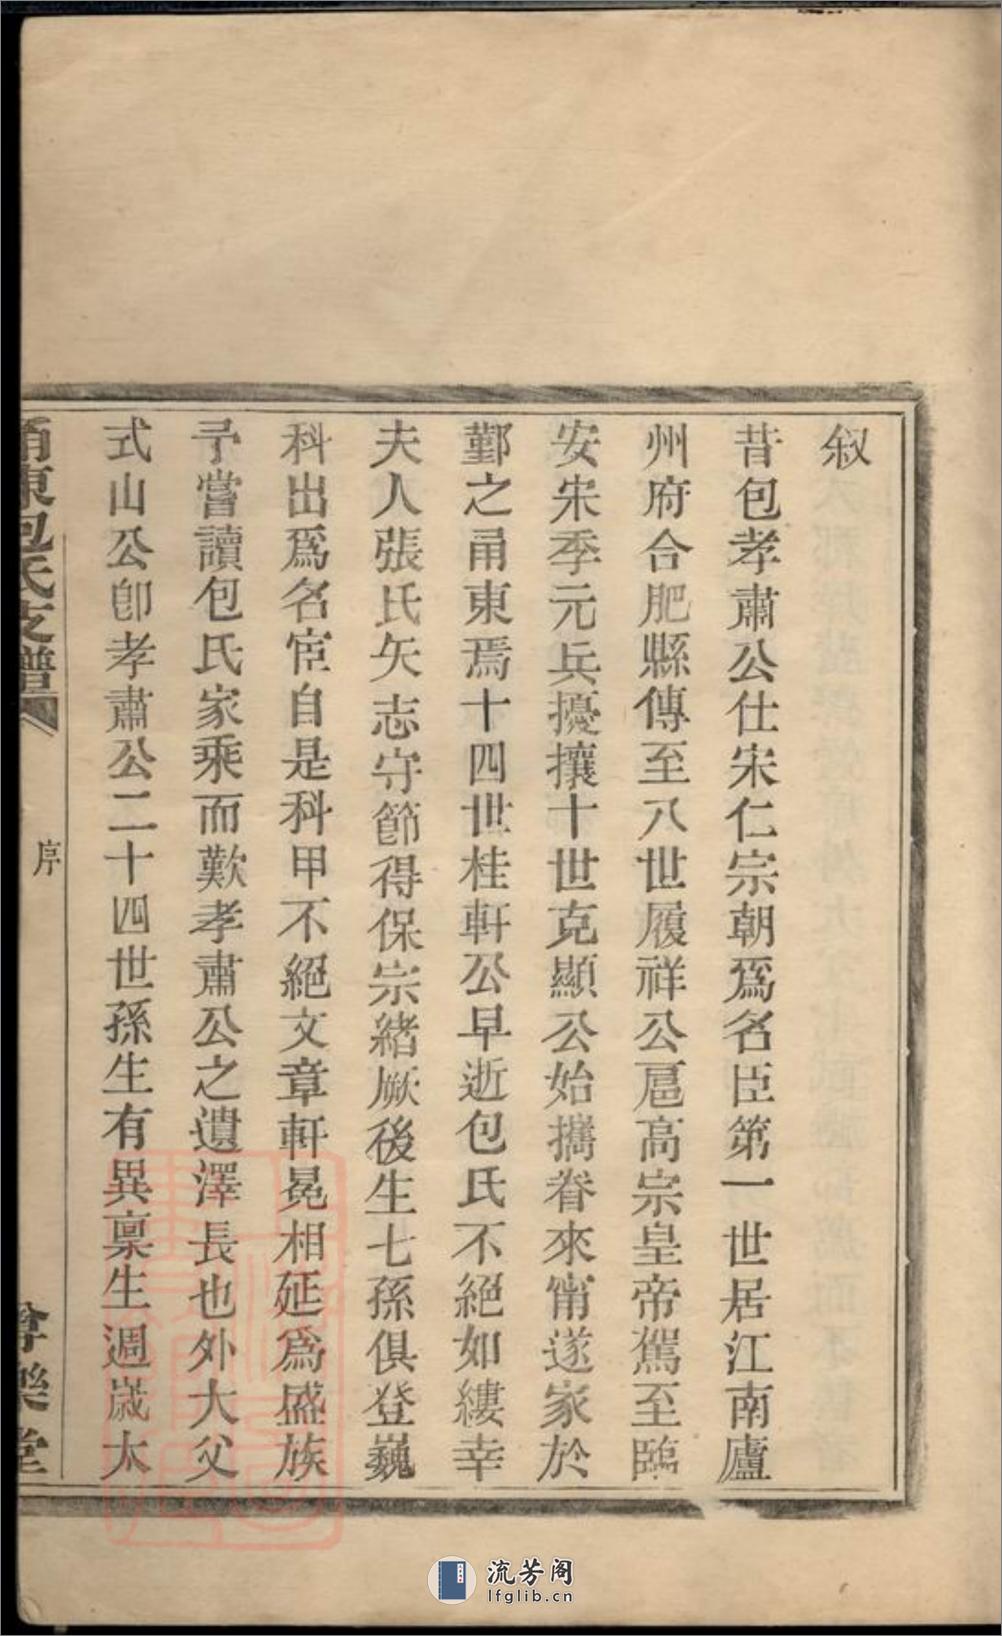 叙
昔包孝肅公仕宋仁宗朝爲名臣第一世居江南廬
州府合肥縣傳至八世履祥公扈高宗皇帝駕至臨
安宋季元兵擾攘十世克顯公始攜眷來甯遂家於
鄞之甬東焉十四世桂軒公早逝包氏不絕如縷幸
夫人張氏矢志守節得保宗緒厥後生七孫俱登巍
科出爲名宦自是科甲不絕文章軒冕相延爲盛族
予嘗讀包氏家乘而歎孝肅公之遺澤長也外大父
式山公卽孝肅公二十四世孫生有異稟生週歲太
甬東包氏支譜
序
堂
流芳阁
lfglib.cn